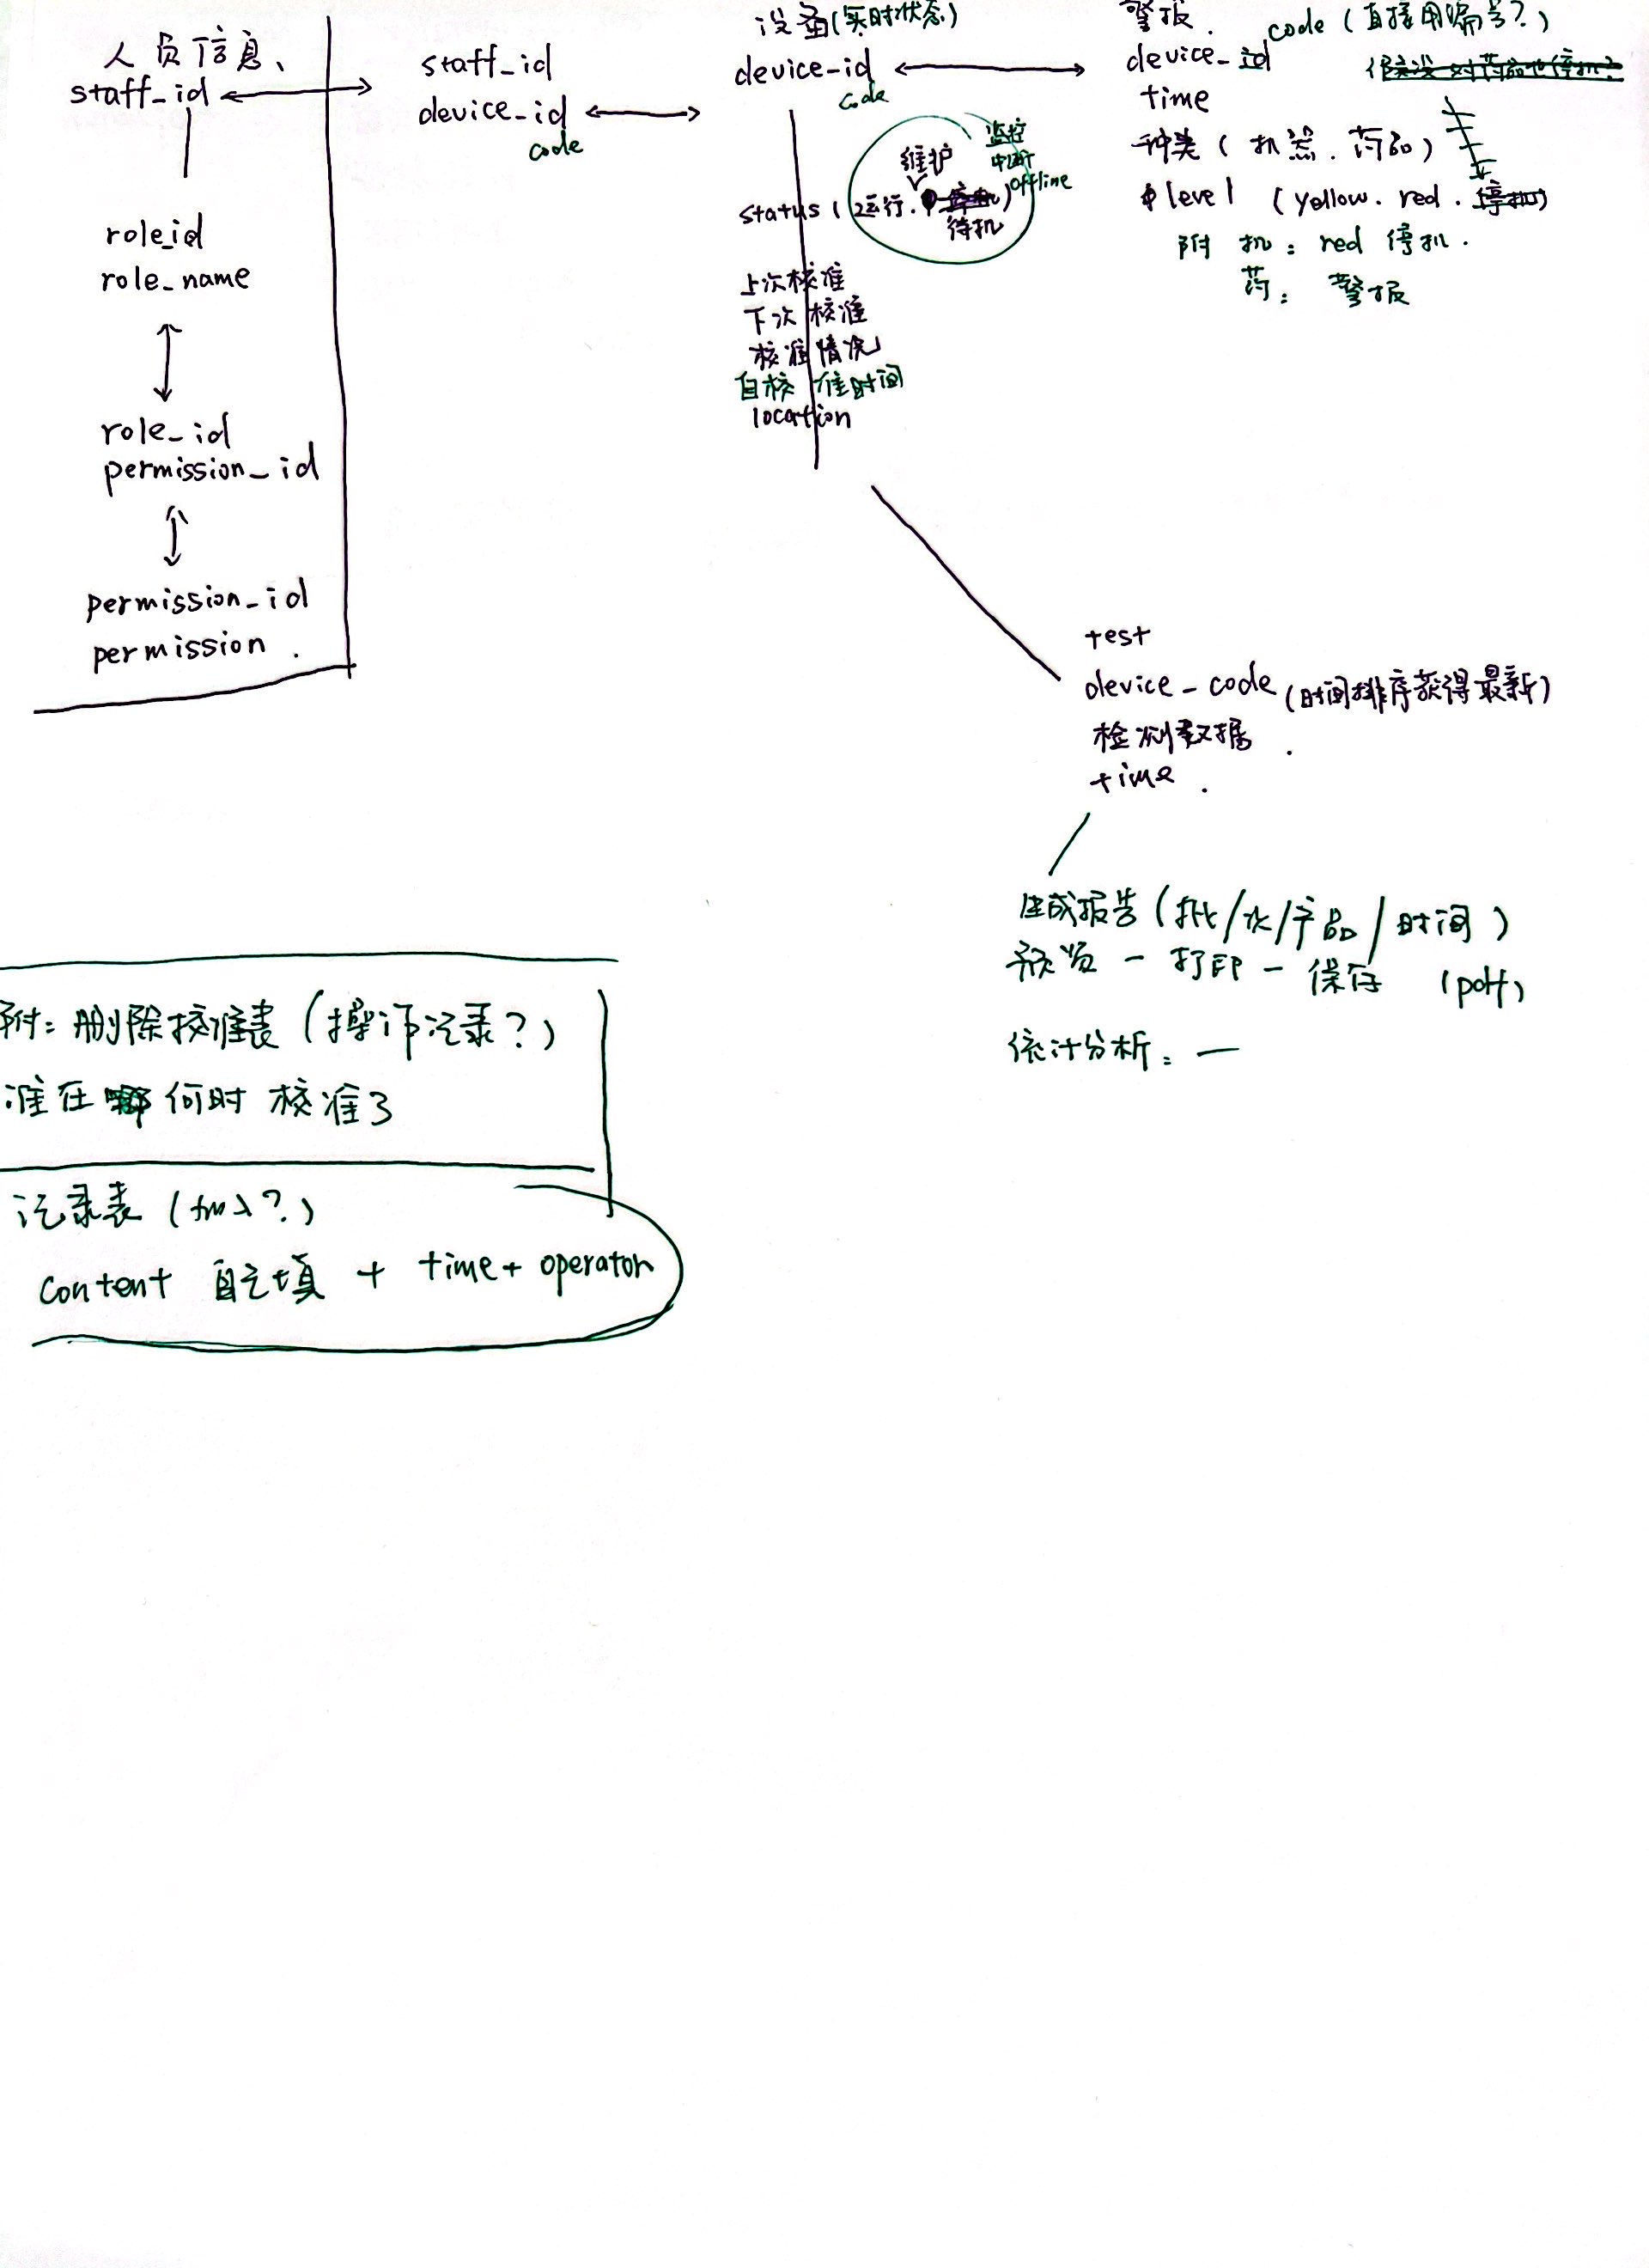 人员信息、
staff_id
role_id
role_name
role_id
permission_id
permission_id
permission .
staff_id
device_id
code
设备(实时状态)
device-id
code
维护
监控
中断
offline
status (运行.
待机
上次校准
下次校准
校准情况
自校准时间
location
警报. code (直接用编号?)
device_id
time
种类 (机器.药品)
level (yellow. red. 停机)
附 机: red 停机.
药: 警报
test
device-code (时间排序获得最新)
检测数据.
time.
生成报告(批/次/产品/时间)
预览 - 打印 - 保存 (pdf)
统计分析: —
附: 删除校准表 (操作记录?)
谁在何时校准了
记录表 (
content 自己填 + time + operator